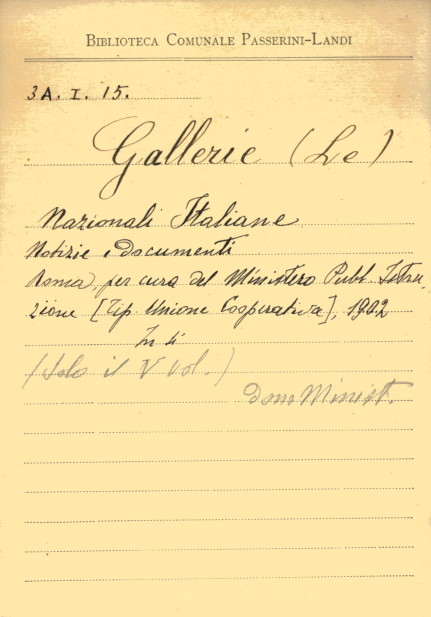 BIBLIOTECA COMUNALE PASSERINI-LANDI
3A. I. 15.
Gallerie (Le)
Nazionali Italiane
Notizie e documenti
Roma, per cura del Ministero Pubb. Istru
zione [Tip. Unione Cooperativa], 1902
In 4
(Solo il V vol.)
Dono Minist.